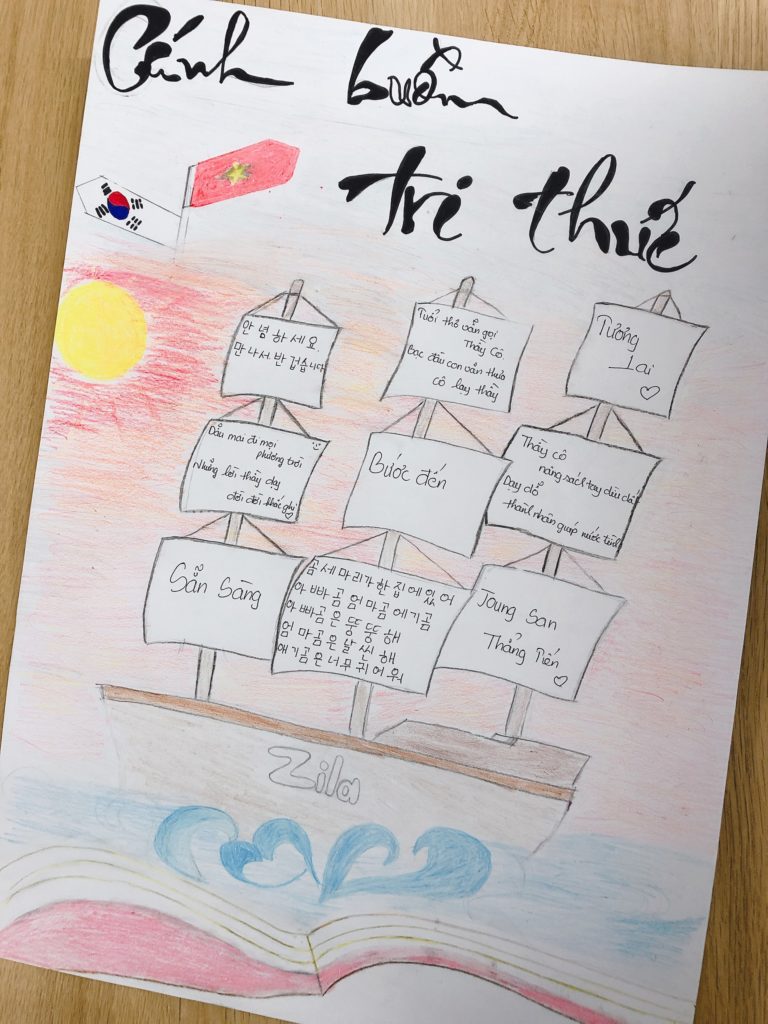 Cánh buồm
tri thức
안녕하세요.
만나서 반겁습니다
Tuổi thơ vẫn gọi
Thầy Cô.
Bạc đầu con vẫn thưa
cô lạy thầy
Tương
Lai
Dẫu mai đi mọi
phương trời
Những lời thầy dạy
đời đời khắc ghi
Bước đến
Thầy cô
nâng sách tay dìu dắt
Dạy dỗ
thành nhân giúp nước
Sẵn Sàng
곰 세마리가 한 집에 있어
아빠곰 엄마곰 애기곰
아빠곰은 뚱뚱해
엄마곰은 날씬해
애기곰은 너무 귀어워
Joung San
Thẳng Tiến
Zila